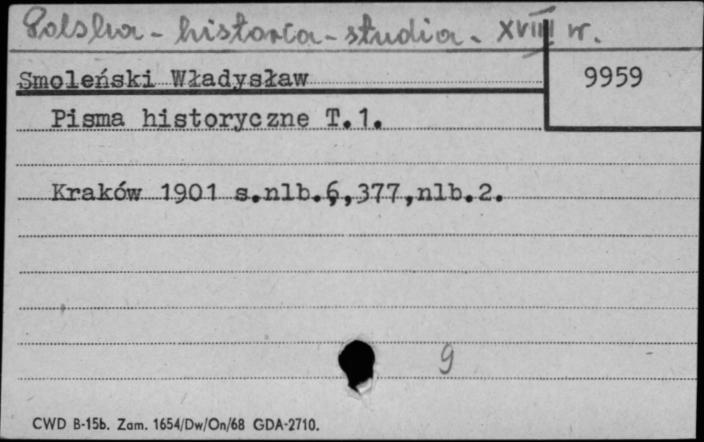 Polska - historia - studia - XVIII w.
Smoleński Władysław
9959
Pisma historyczne T.1.
Kraków 1901 s.nlb.6,377,nlb.2.
9
CWD B-15b. Zam. 1654/Dw/On/68 GDA-2710.